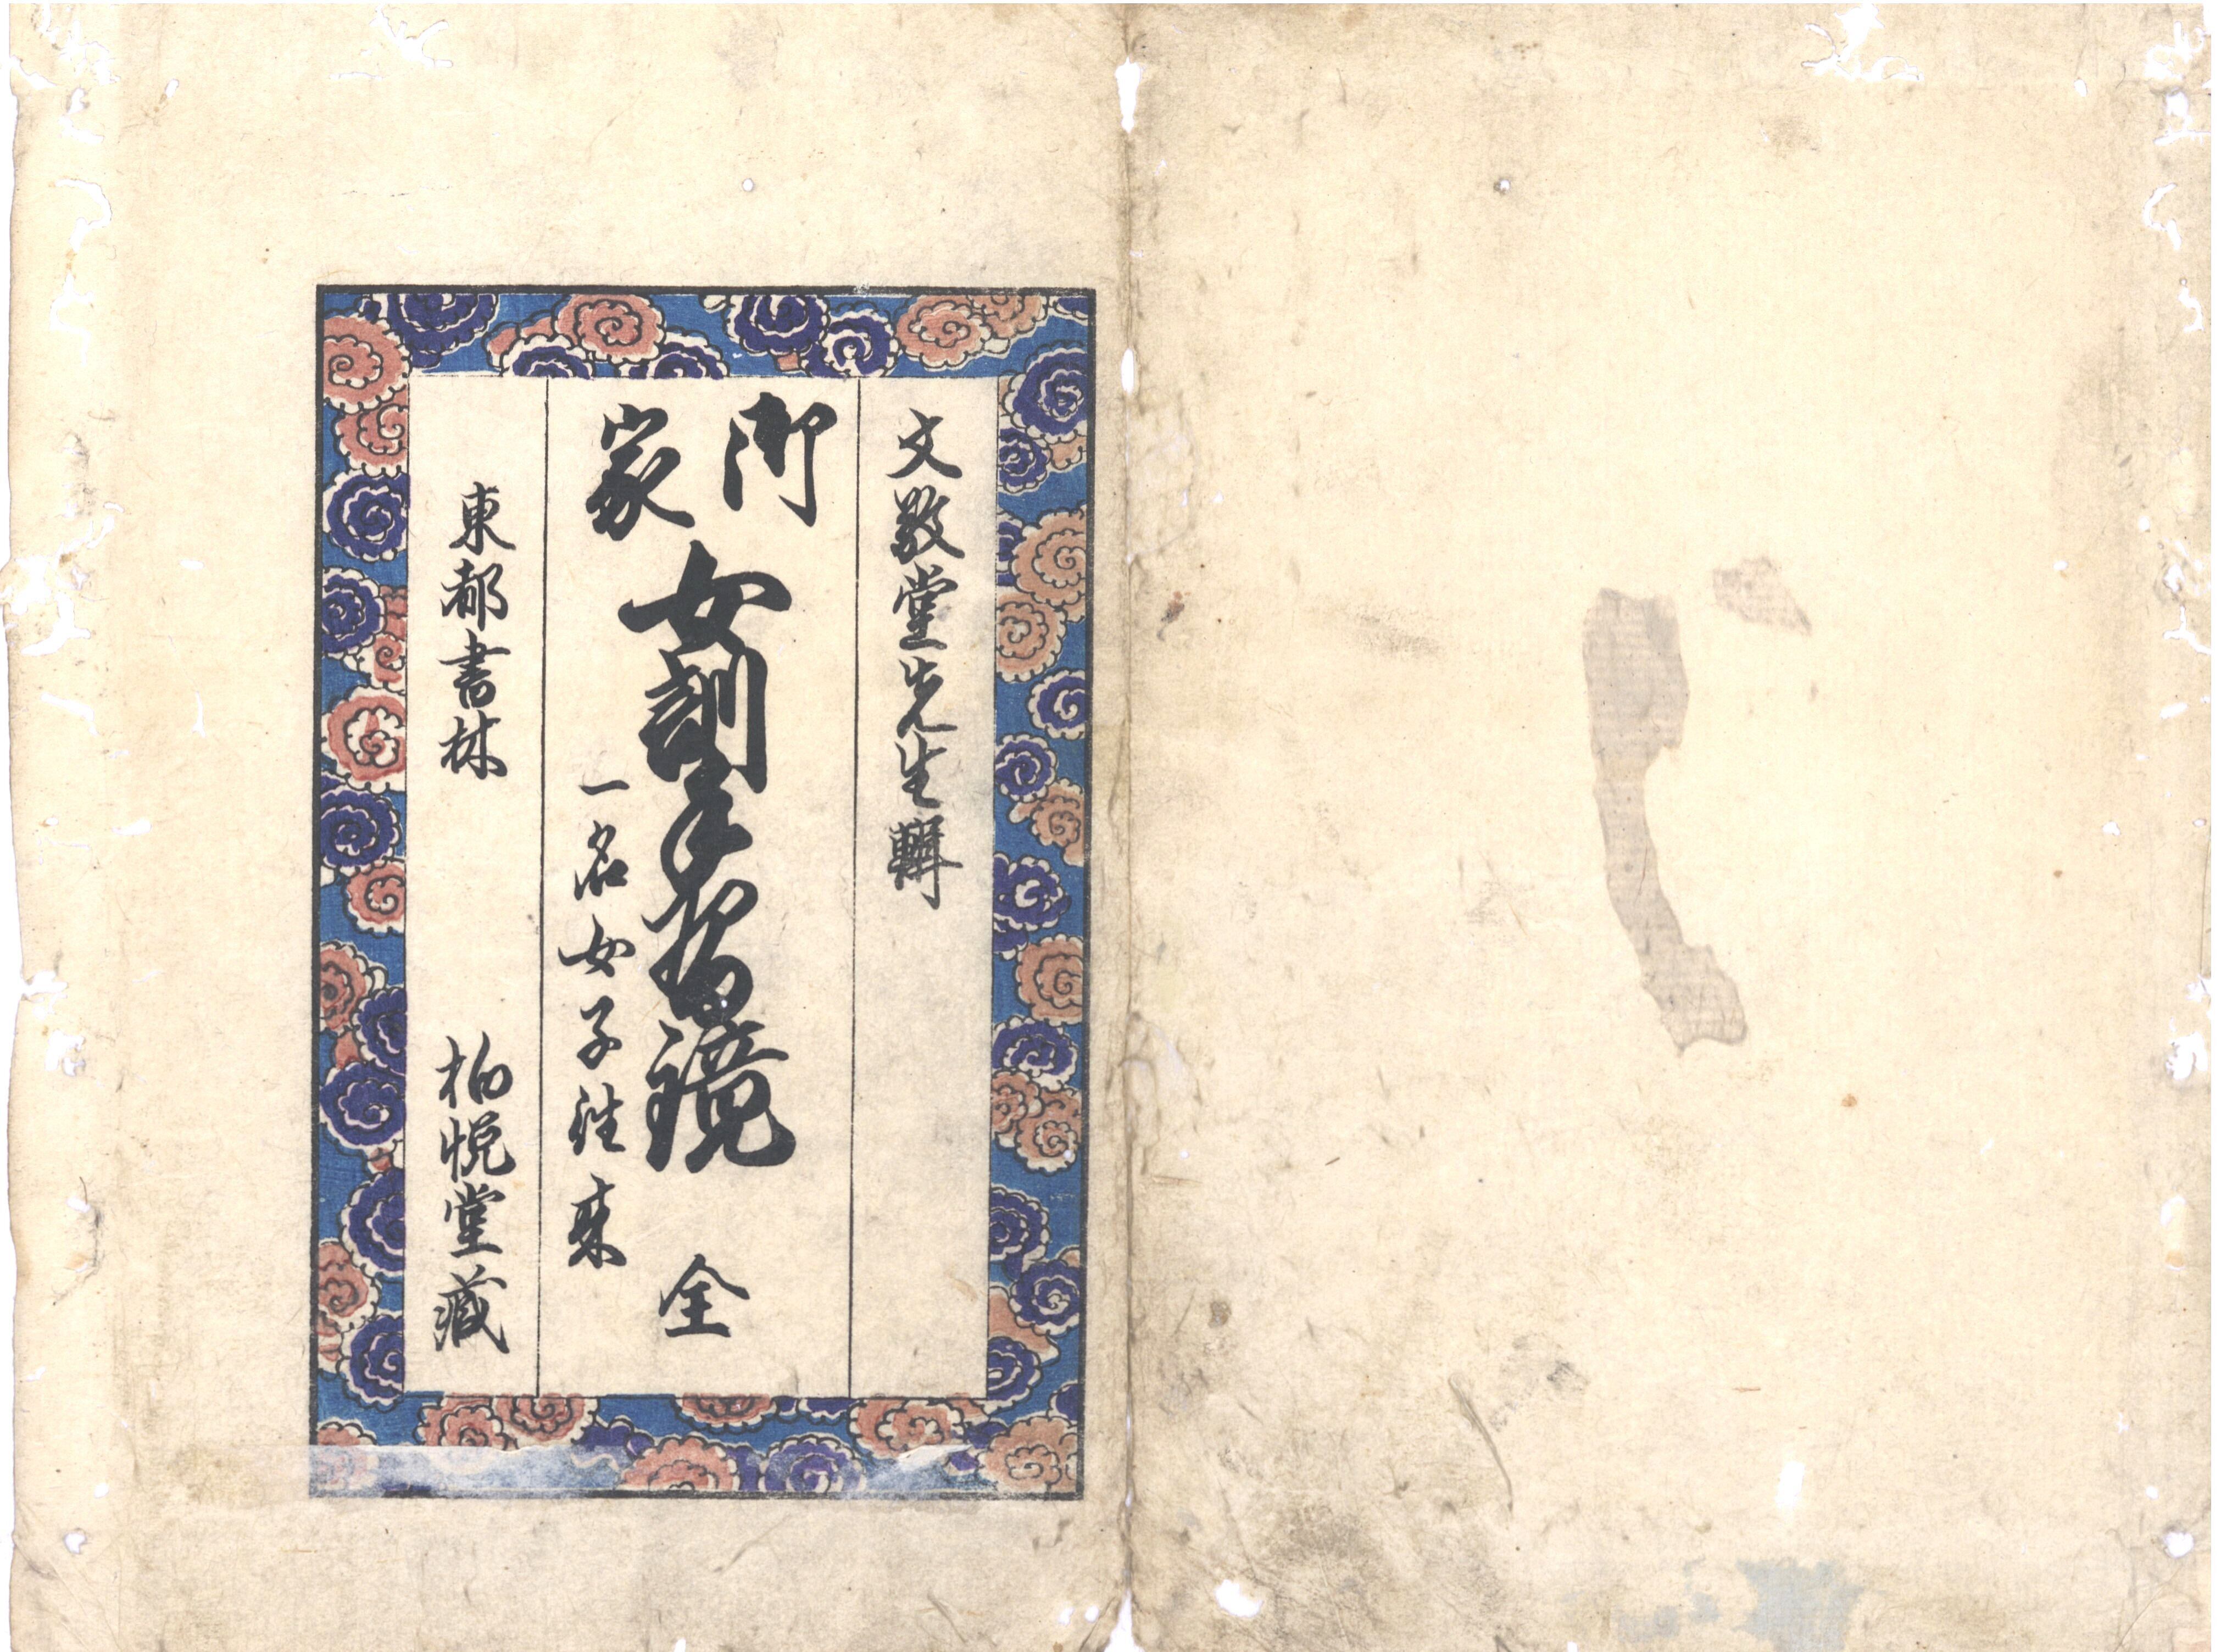 文敬堂先生輯
御家
女訓手習鏡 全
一名女子往来
東都書林 柏悦堂藏